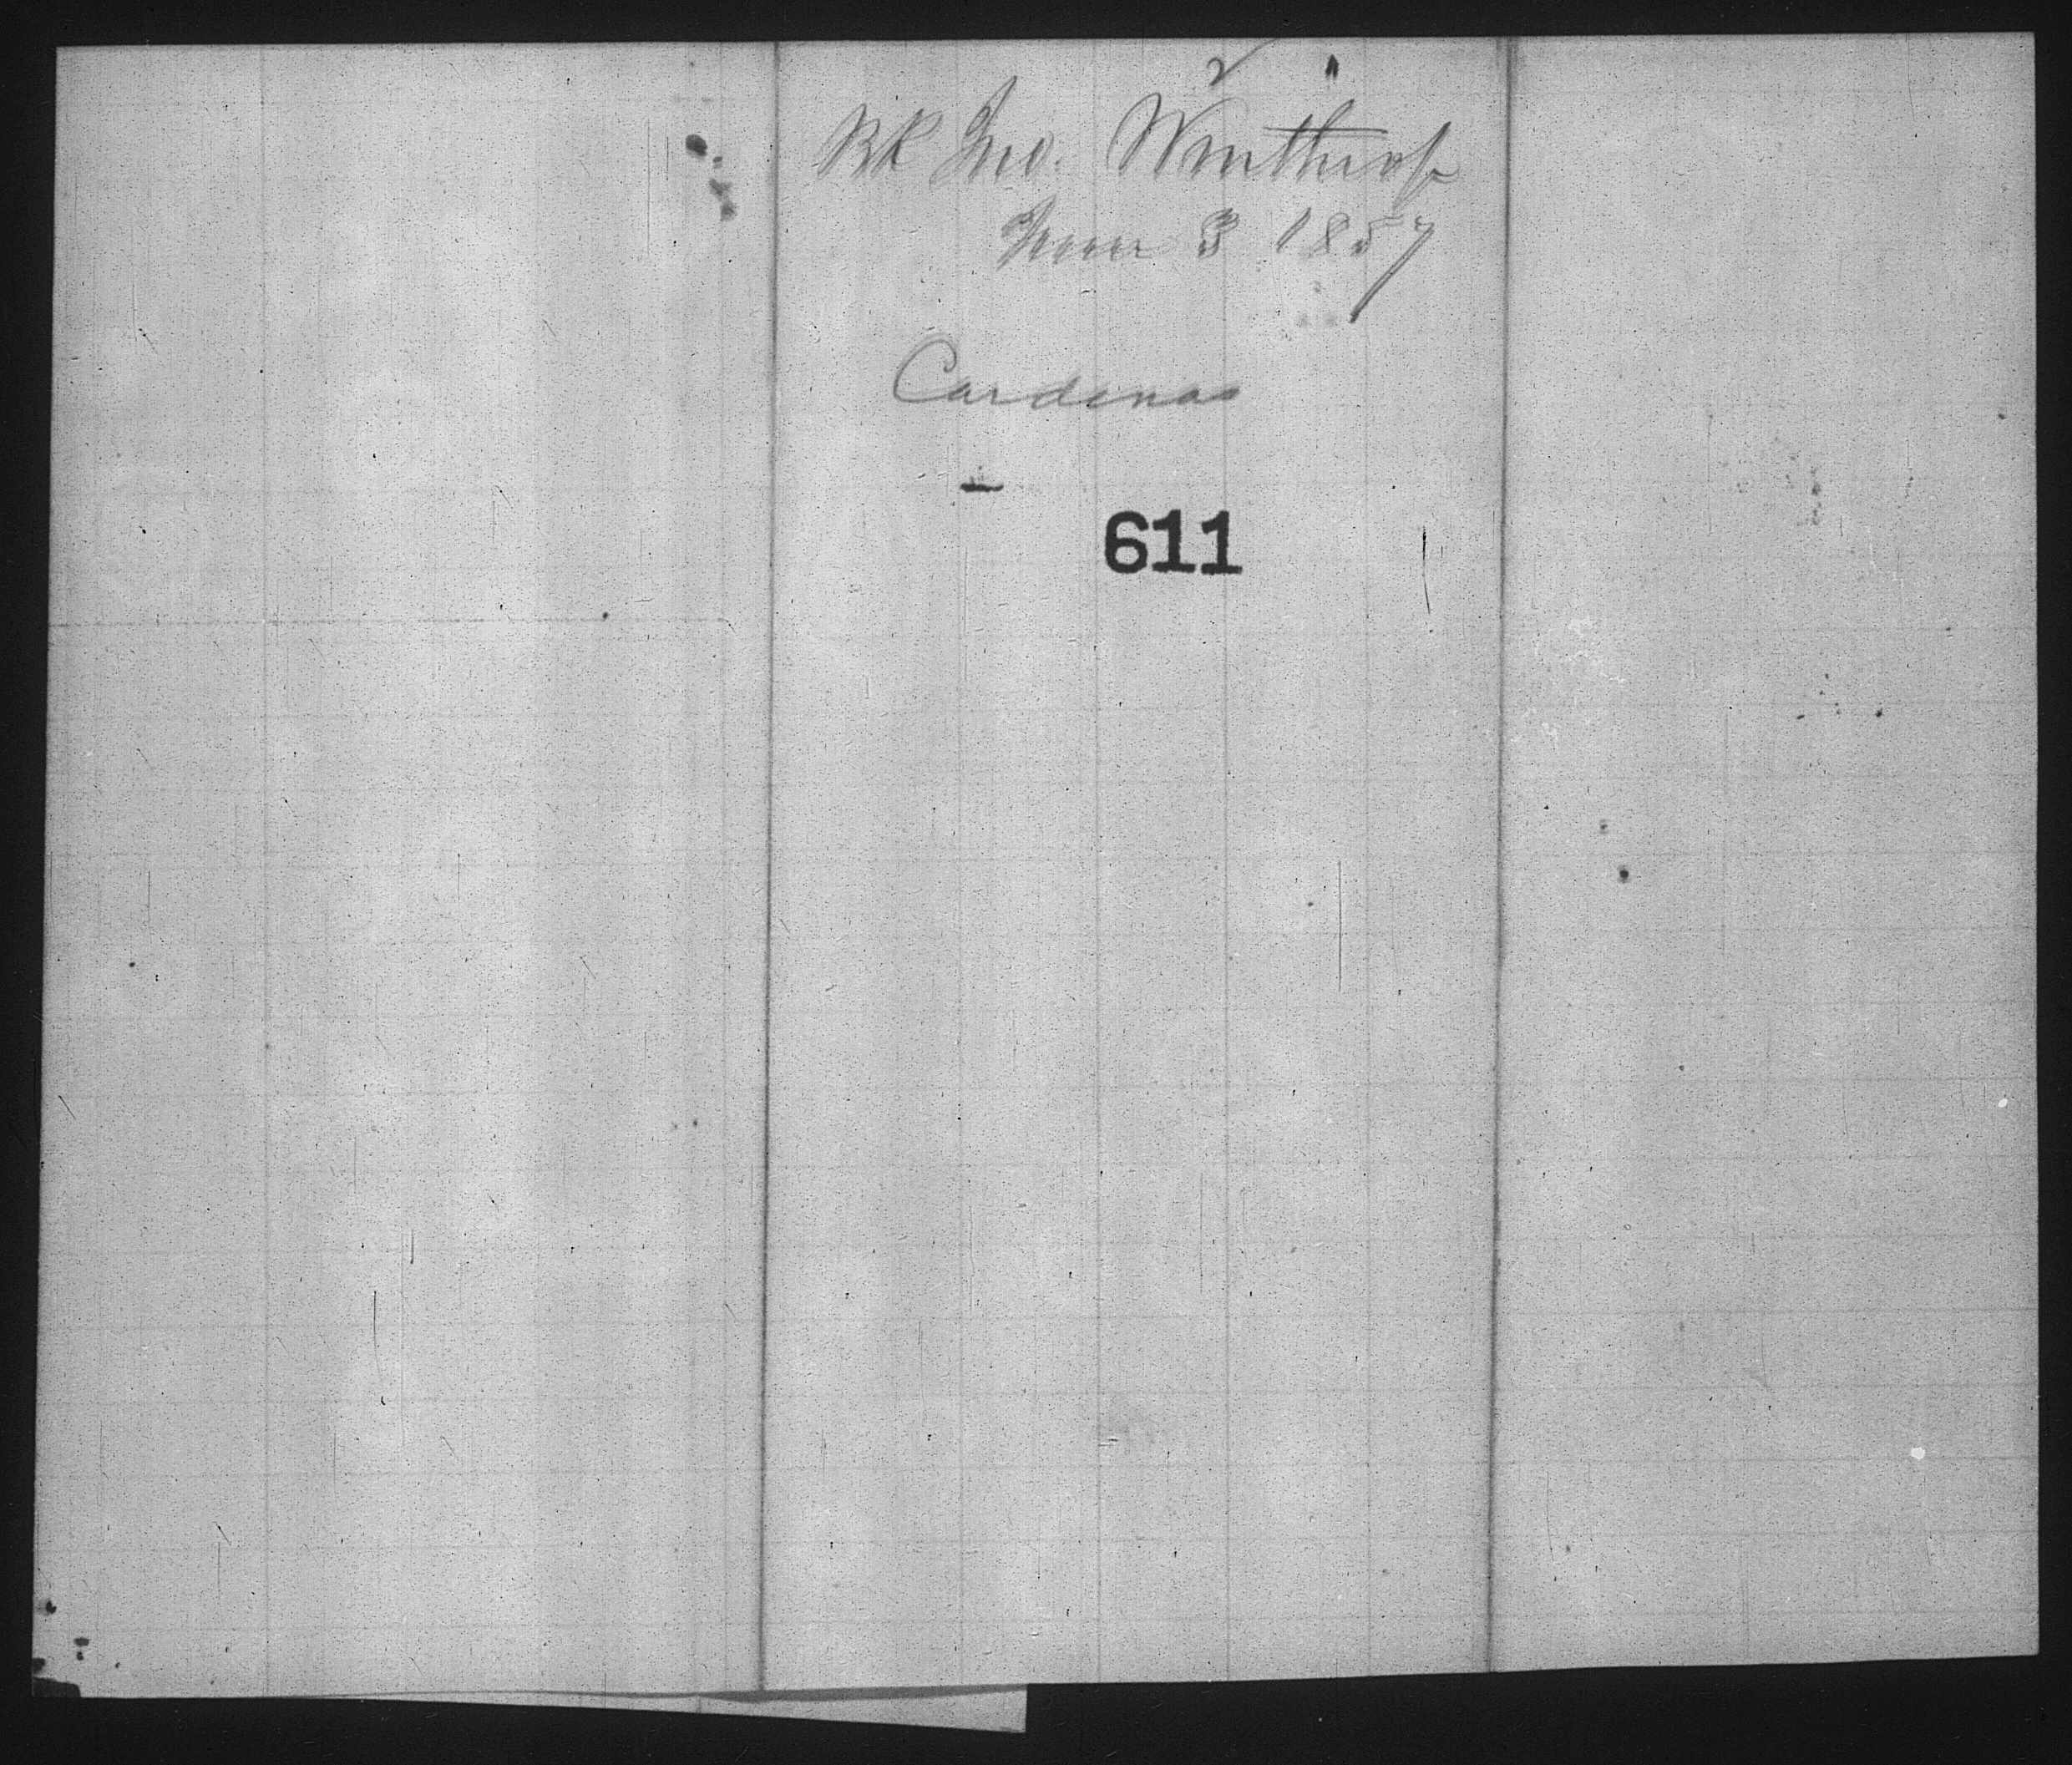 Bk Jno. Winthrop
June 3 1857
Cardenas
611